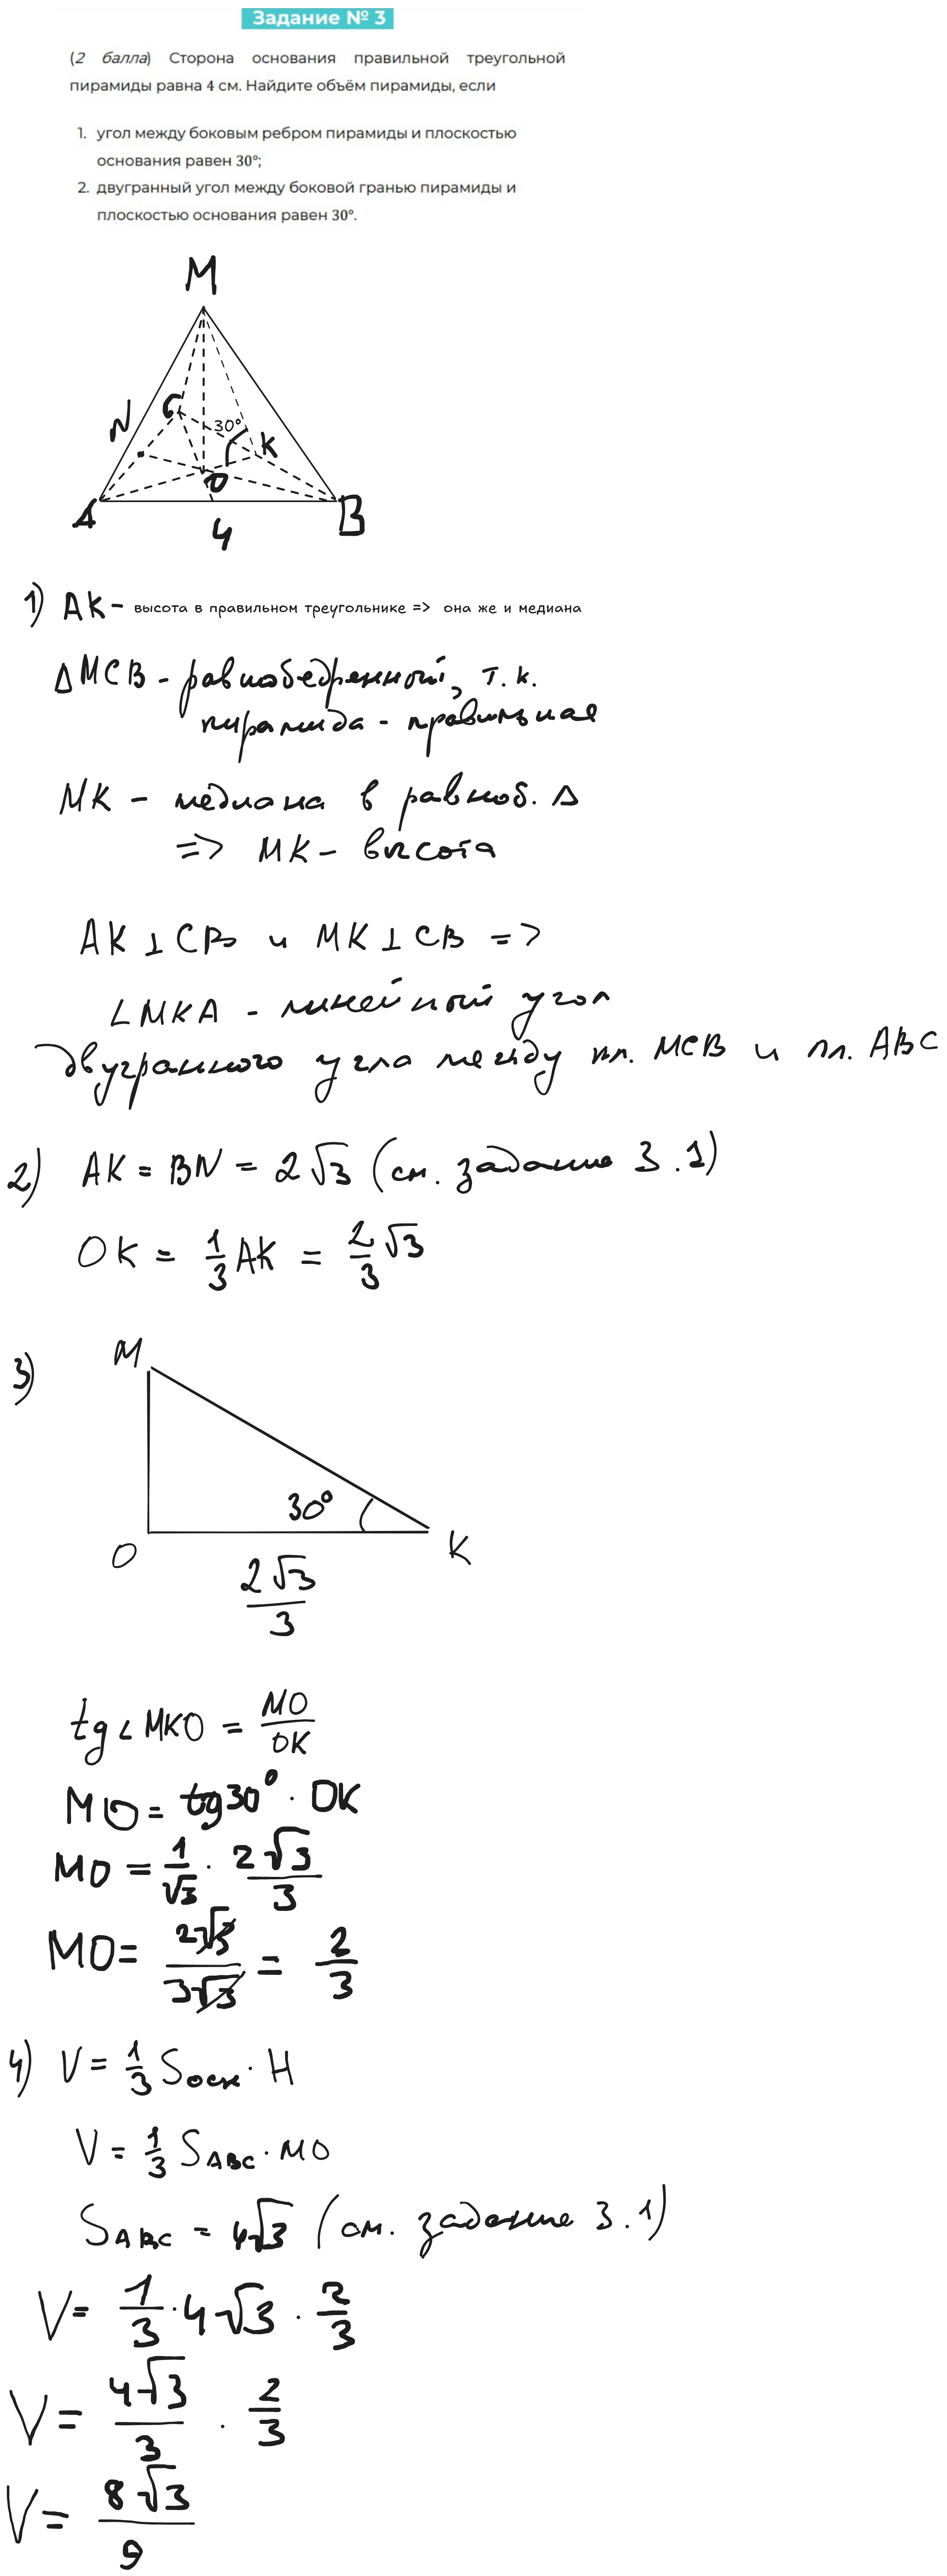 Задание № 3
(2 балла) Сторона основания правильной треугольной
пирамиды равна 4 см. Найдите объём пирамиды, если
1. угол между боковым ребром пирамиды и плоскостью
основания равен 30°;
2. двугранный угол между боковой гранью пирамиды и
плоскостью основания равен 30°.
M
C
N
30°
K
O
A
B
4
1) AK - высота в правильном треугольнике => она же и медиана
Δ MCB - равнобедренный, т.к.
пирамида - правильная
MK - медиана в равноб. Δ
=> MK - высота
AK ⊥ CB и MK ⊥ CB =>
∠MKA - линейный угол
двугранного угла между пл. MCB и пл. ABC
2) AK = BN = 2√3 (см. задание 3.1)
OK = 1/3 AK = 2/3 √3
3)
M
30°
O
K
2√3/3
tg ∠ MKO = MO/OK
MO = tg30° · OK
MO = 1/√3 · 2√3/3
MO = 2√3/3√3 = 2/3
4) V = 1/3 Sосн · H
V = 1/3 SABC · MO
SABC = 4√3 (см. задание 3.1)
V = 1/3 · 4√3 · 2/3
V = 4√3/3 · 2/3
V = 8√3/9